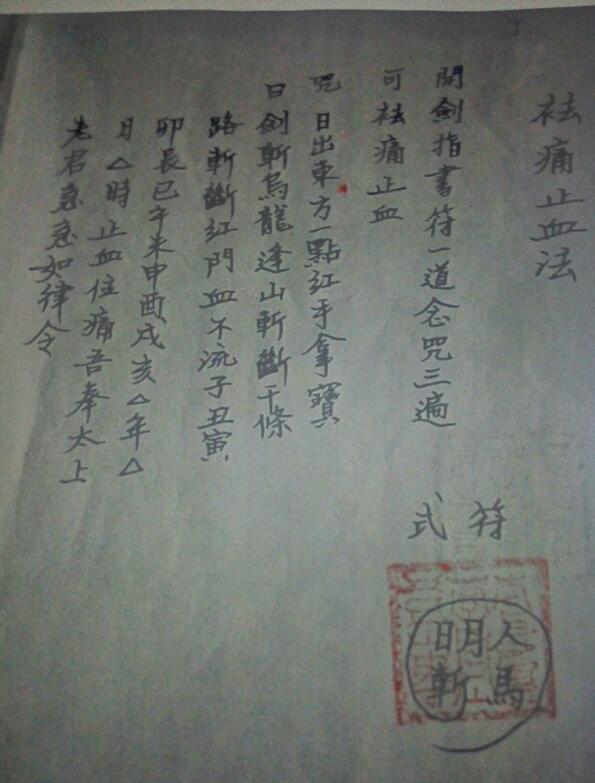 祛痛止血法
開劍指書符一道念咒三遍
可祛痛止血
咒日出東方一點紅手拿寶
日劍斬烏龍逢山斬斷千條
路斬斷紅門血不流子丑寅
卯辰巳午未申酉戌亥△年△
月△時止血住痛吾奉太上
老君急急如律令
符式
人馬
明月日斬